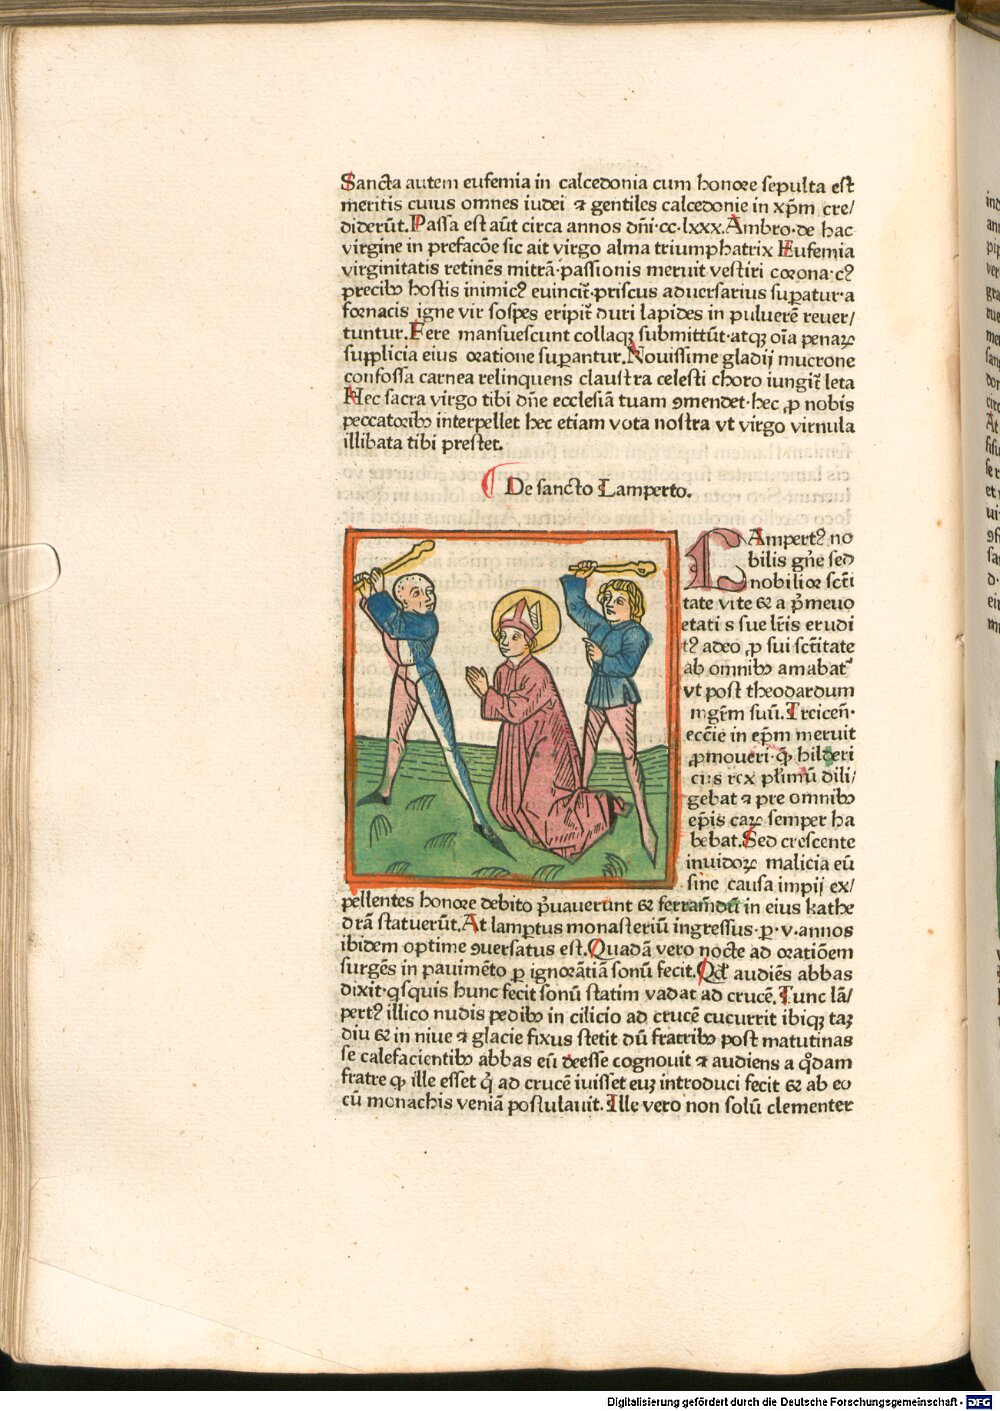 Sancta autem eufemia in calcedonia cum honore sepulta est
meritis cuius omnes iudei ⁊ gentiles calcedonie in xp̄m cre/
diderūt. Passa est aūt circa annos dn̄i·cc·lxxx. Ambro·de hac
virgine in prefacōe sic ait virgo alma triumphatrix Eufemia
virginitatis retinēs mitrā·passionis meruit vestiri corona·cꝰ
precibꝰ hostis inimicꝰ euincit̄·priscus aduersarius suꝑatur·a
fornacis igne vir sospes eripit̄ duri lapides in puluerē reuer/
tuntur. Fere mansuescunt collaqꝫ submittūt·atqꝫ oīa penaꝝ
supplicia eius oratione suꝑantur. Nouissime gladij mucrone
confossa carnea relinquens claustra celesti choro iungit̄ leta
Hec sacra virgo tibi dn̄e ecclesiā tuam ꝯmendet·hec ꝓ nobis
peccatoribꝰ interpellet hec etiam vota nostra vt virgo virnula
illibata tibi prestet.
De sancto Lamperto.
LAmpertꝰ no
bilis gn̄e sed
nobilior sct̄i
tate vite & a p̄meuo
etati s sue lr̄is erudi
tꝰ adeo ꝓ sui sct̄itate
ab omnibꝰ amabat᷑
vt post theodardum
mgr̄m suū. Treicen̄·
ecc̄ie in ep̄m meruit
ꝓmoueri·ꝙ hilderi
cus rex pl̄imū dili/
gebat ⁊ pre omnibꝰ
ep̄is caꝝ semper ha
bebat. Sed crescente
inuidoꝝ malicia eū
sine causa impij ex/
pellentes honore debito p̄uauerunt & ferramdū in eius kathe
drā statuerūt. At lamꝑtus monasteriū ingressus·ꝑ·v·annos
ibidem optime ꝯuersatus est. Quadā vero nocte ad oratiōem
surgēs in pauimēto ꝑ ignorātiā sonū fecit. Qd̄ audiēs abbas
dixit·qͥsquis hunc fecit sonū statim vadat ad crucē. Tunc lā/
pertꝰ illico nudis pedibꝰ in cilicio ad crucē cucurrit ibiqꝫ taꝫ
diu & in niue ⁊ glacie fixus stetit dū fratribꝰ post matutinas
se calefacientibꝰ abbas eū deesse cognouit ⁊ audiens a qͦdam
fratre ꝙ ille esset qͥ ad crucē iuisset euꝫ introduci fecit & ab eo
cū monachis veniā postulauit. Ille vero non solū clementer
Digitalisierung gefördert durch die Deutsche Forschungsgemeinschaft - DFG